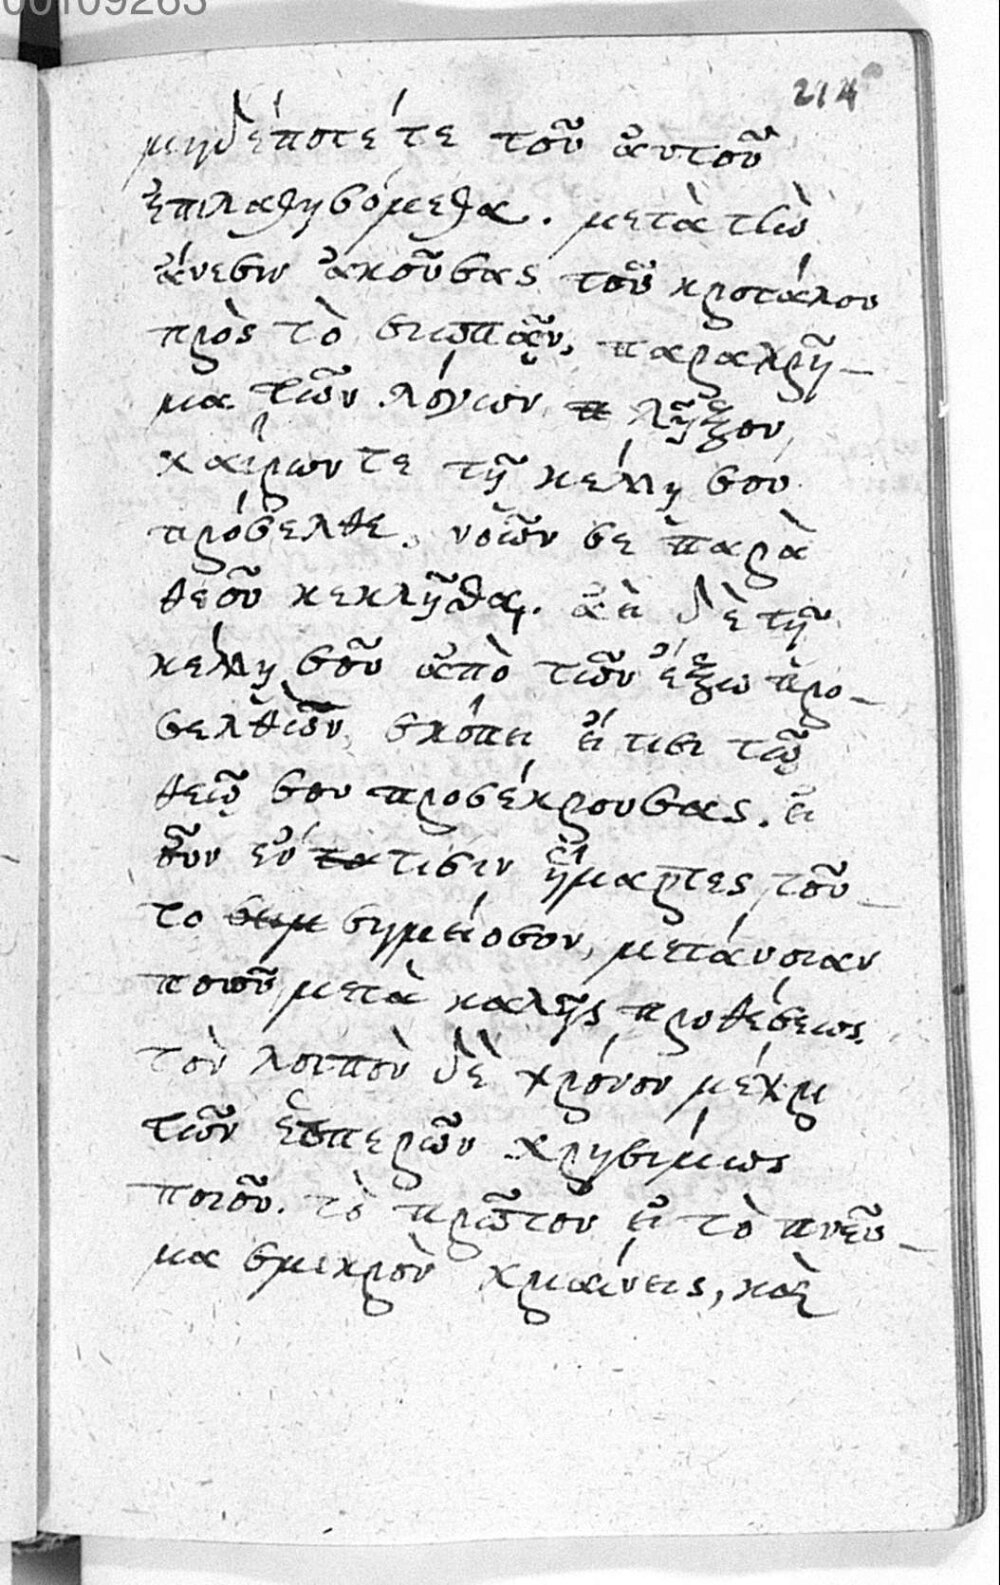 00109263
214
μηδέποτέ τε τοῦ ἀυτοῦ
ἐπιλαθησόμεθα. μετὰ τὴν
ἄνεσιν ἀκοῦσας τοῦ κροτάλου
πρὸς τὸ σιωπᾷν, παραχρῆ-
μα τῶν λόγων λῆξον,
χαίρων τε τῇ κέλλῃ σου
πρόσελθε, νοῶν σε παρὰ
θεοῦ κεκλῆσθαι. ἀεὶ δὲ τῇ
κέλλῃ σοῦ ἀπὸ τῶν ἔξω προ-
σελθὼν, σκόπει εἴ τισι τῷ
θεῷ σου προσέκρουσας. εἰ
οὖν ἔν τισιν ἥμαρτες, τοῦ-
το σημείοσον, μετάνοιαν
ποιοῦ μετὰ καλῆς προθέσεως.
τὸν λοιπὸν δὲ χρόνον μέχρι
τῶν ἑσπερῶν χρησίμως
ποιοῦ. τὸ πρῶτον εἰ τὸ πνεῦ-
μα σμικρὸν χραίνεις, καὶ